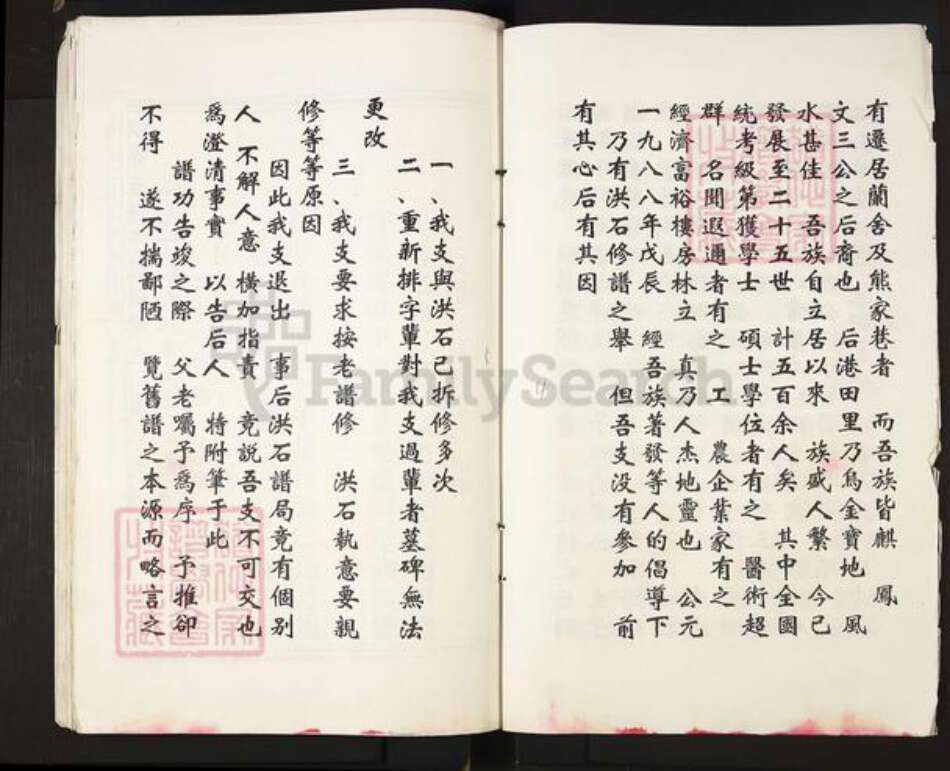 有遷居蘭舍及熊家巷者　而吾族皆麒　鳳
文三公之后裔也　后港田里乃烏金寶地　風
水甚佳　吾族自立居以來　族盛人繁　今已
發展至二十五世　計五百余人矣　其中全國
統考級第獲學士　碩士學位者有之　醫術超
群　名聞遐邇者有之　工　農企業家有之
經濟富裕樓房林立　真乃人杰地靈也　公元
一九八八年戊辰　經吾族著發等人的倡導下
乃有洪石修譜之舉　但吾支没有參加　前
有其心后有其因
一、我支與洪石已拆修多次
二、重新排字輩對我支過輩者墓碑無法
更改
三、我支要求按老譜修　洪石執意要親
修等等原因
因此我支退出　事后洪石譜局竟有個别
人　不解人意　横加指責　竟説吾支不可交也
爲澄清事實　以告后人　特附筆于此
譜功告竣之際　父老囑予爲序　予推卻
不得　遂不揣鄙陋　覽舊譜之本源而略言之
FamilySearch